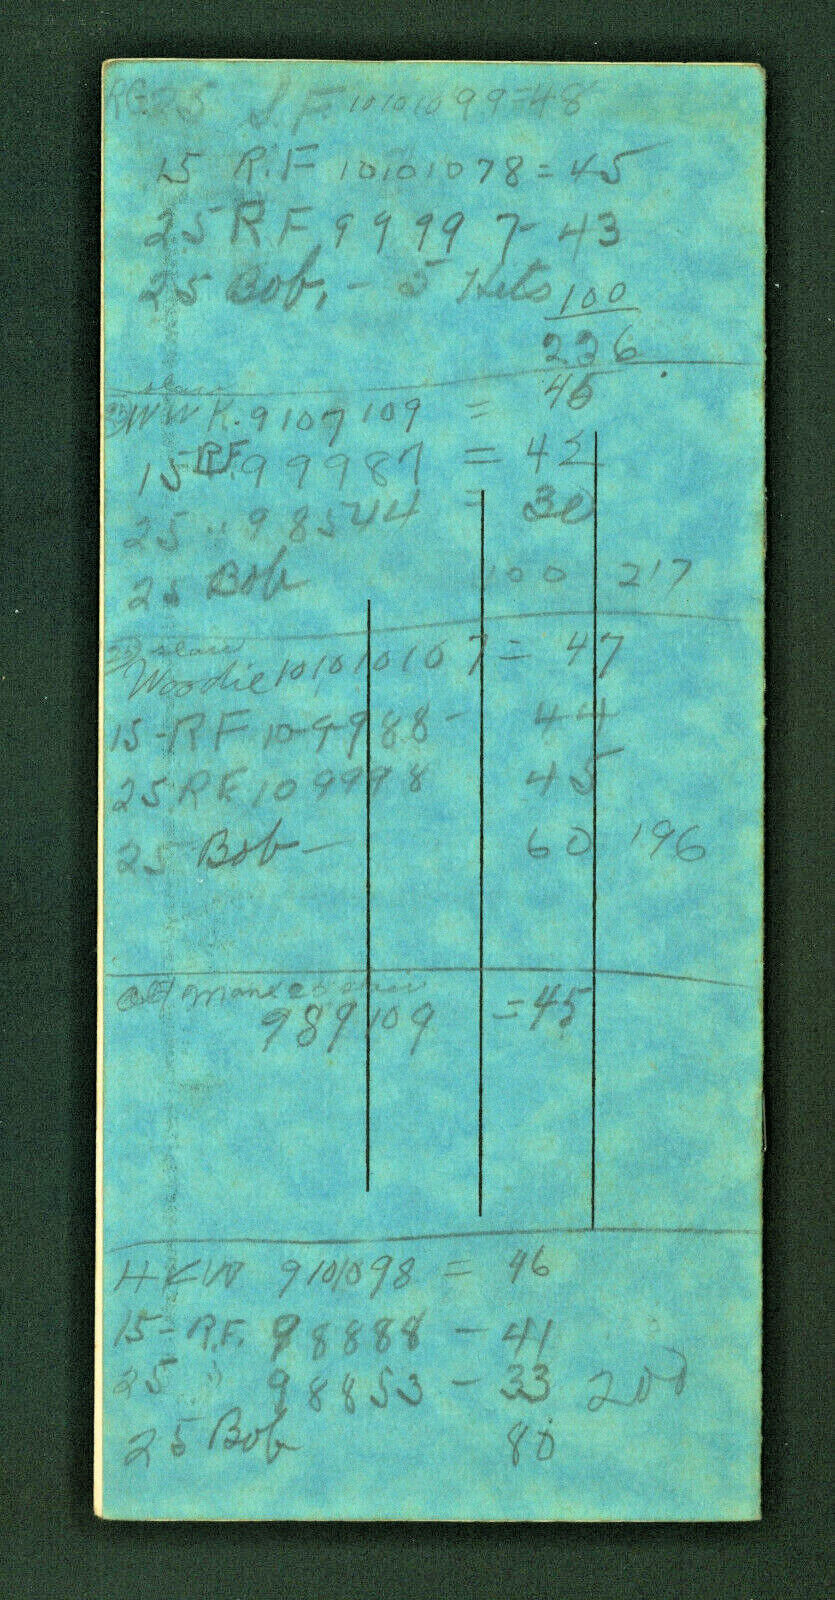 25 S F 10 10 10 9 9 = 48
15 R.F 10 10 10 7 8 = 45
25 R F 9 9 9 9 7 - 43
25 Bob, - 5 Hits 100
226
slow
W W K. 9 10 7 10 9 = 45
15 R.F. 9 9 9 8 7 = 42
25 " 9 8 5 4 4 = 30
25 Bob 100 217
slow
Woodie 10 10 10 10 7 = 47
15 - R F 10 9 9 8 8 - 44
25 R F. 10 9 9 9 8 45
25 Bob - 60 196
9 8 9 10 9 = 45
H K W 9 10 10 9 8 = 46
15 - R.F. 9 8 8 8 8 - 41
25 " 9 8 8 5 3 - 33 200
25 Bob 80